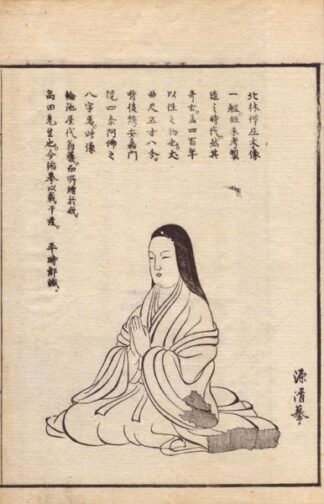 北林禅庄木像
一躯組未考製
造之時代然其
奇古蓋四百年
以往之物也丈
曲尺五寸八分
背後修安嘉門
院四条阿佛之
八字焉此像
輪池屋代翁獲而所贈於我
高田先生也今縮摹以載于茲
平時鄰識
源清摹